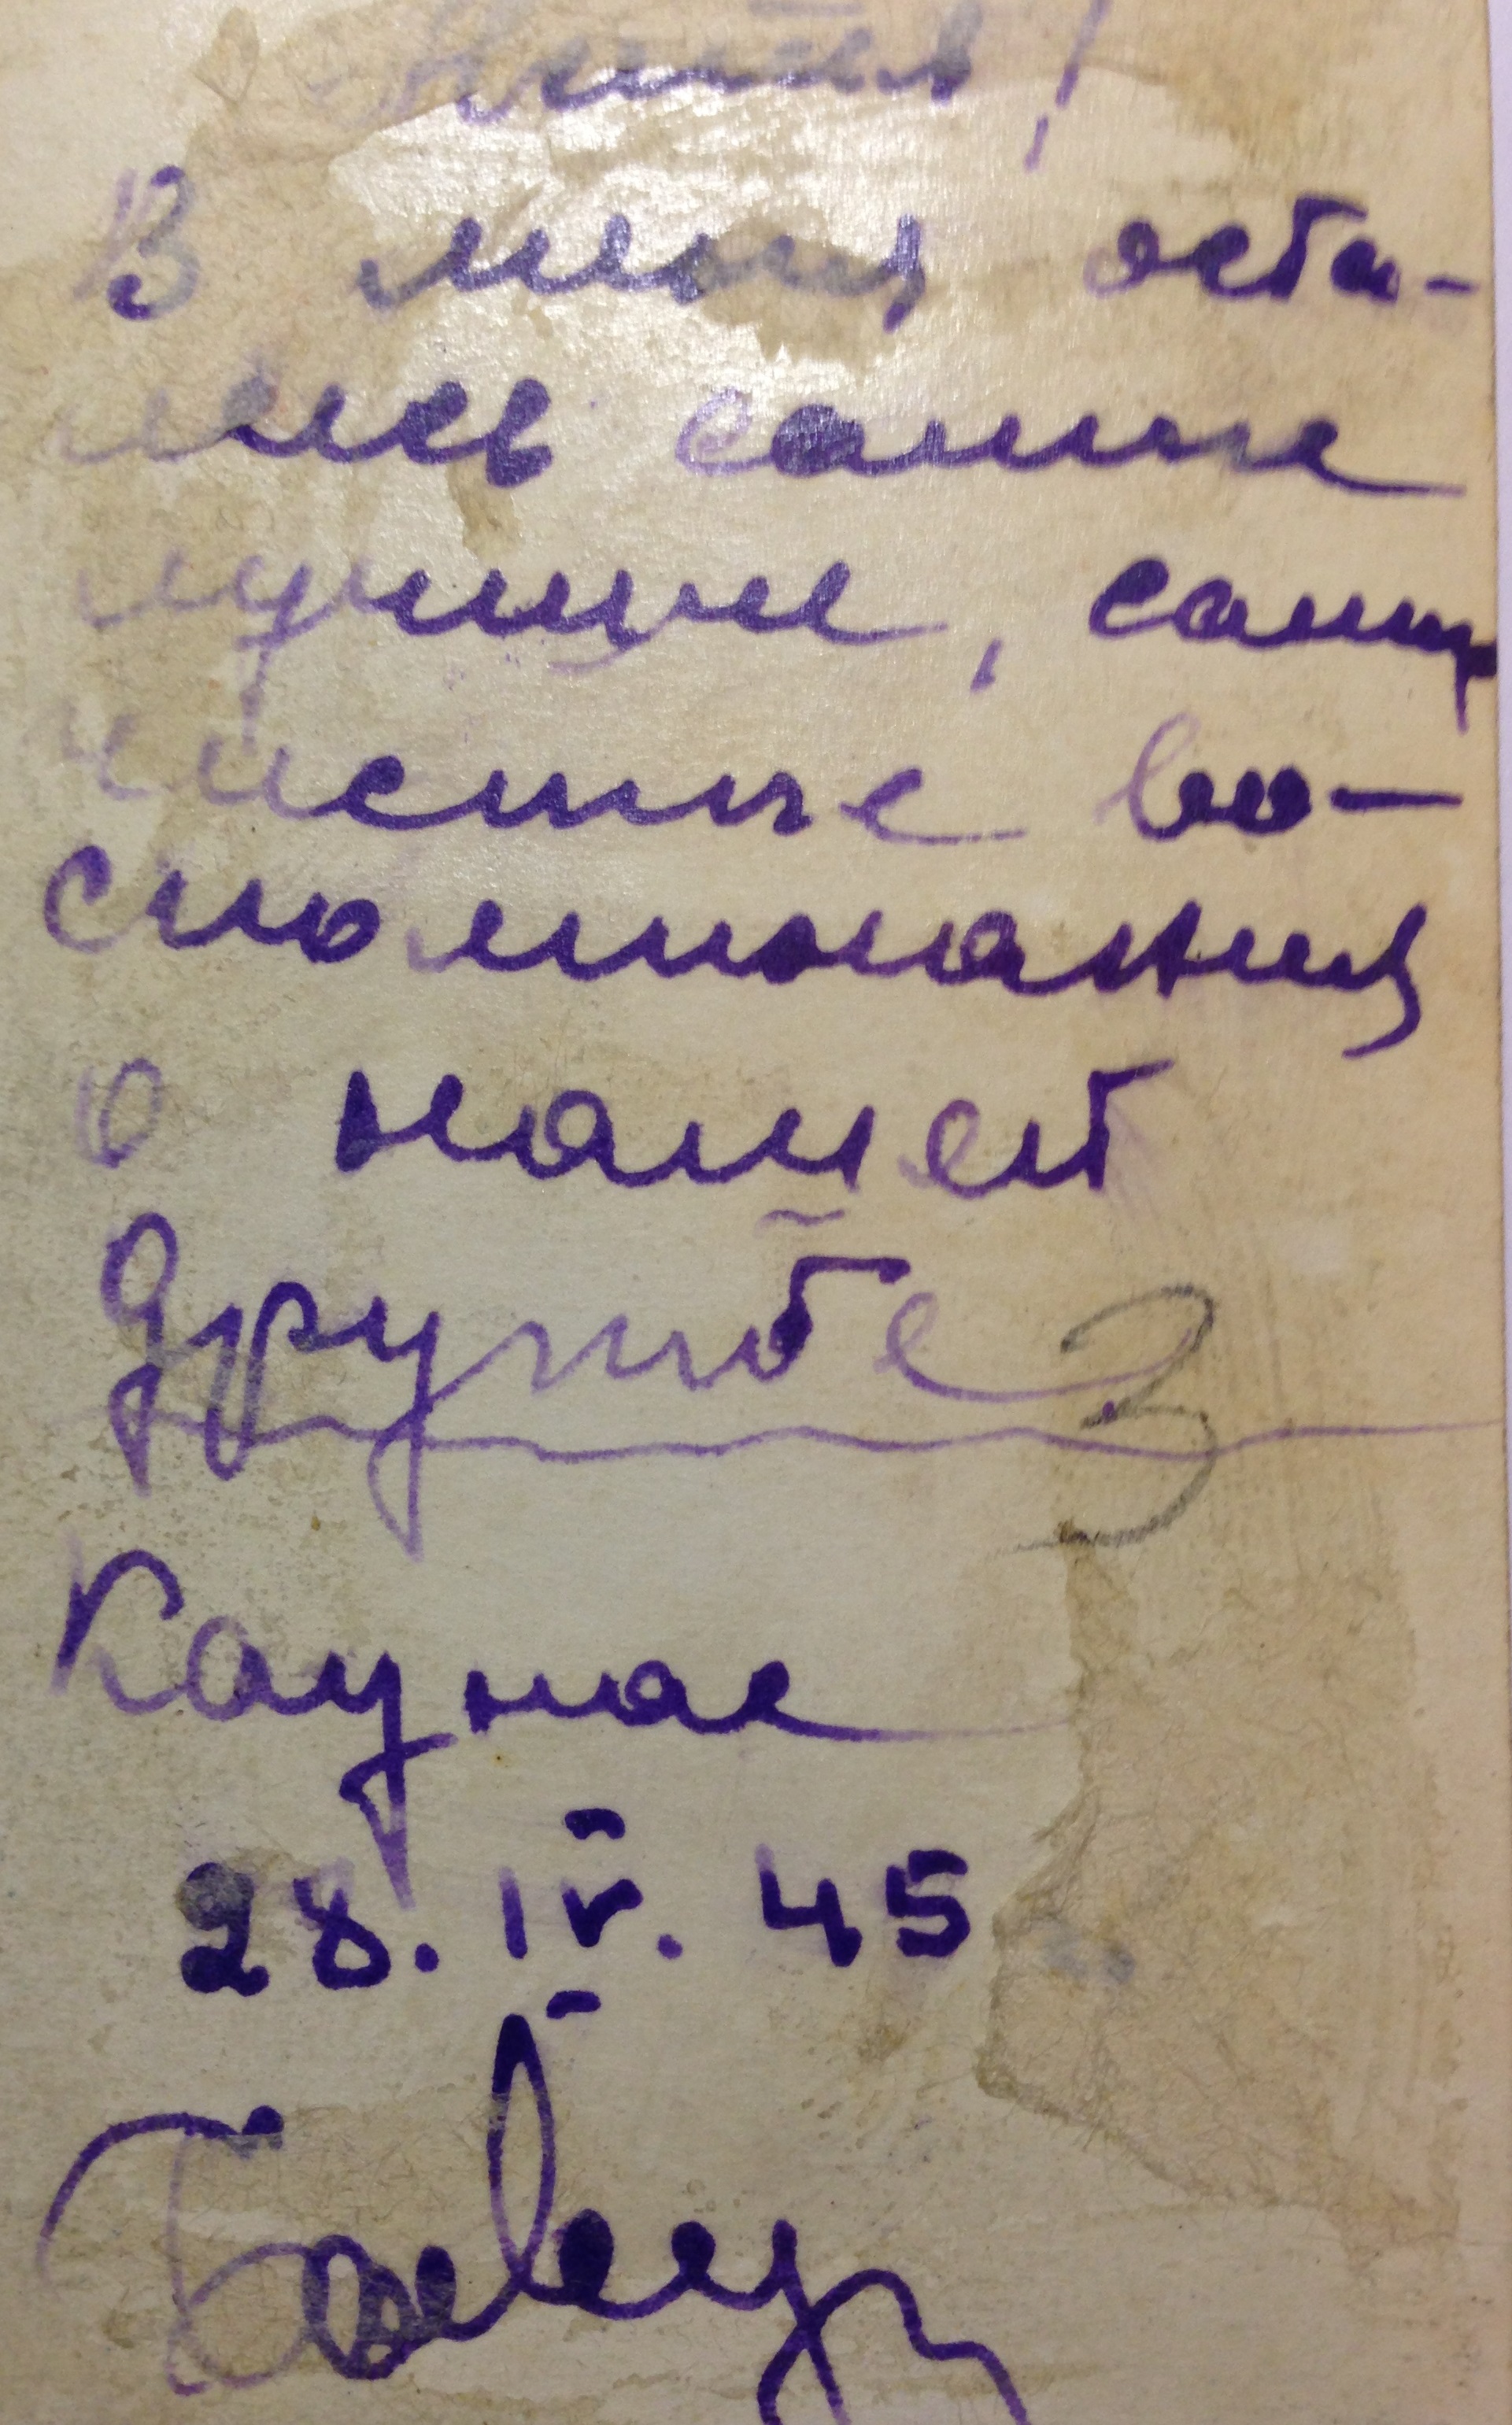 В меня оста-
лись самые
лучшие, самые
чистые во-
споминания
о нашей
дружбе
3
Каунас
28.IV.45